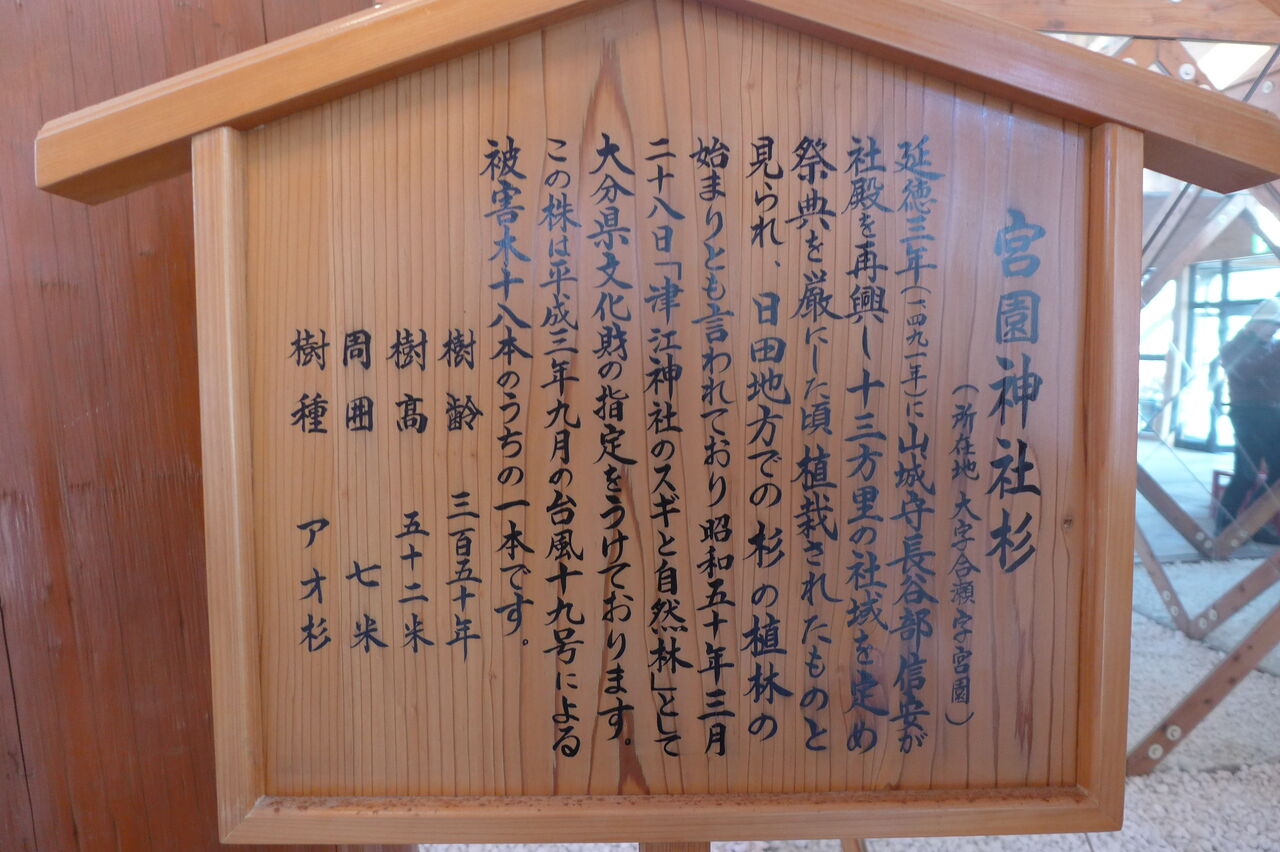 宮園神社杉
（所在地 大字合瀬字宮園）
延徳三年（一四九一年）に山城守長谷部信安が
社殿を再興し十三方里の社域を定め
祭典を厳にした頃植栽されたものと
見られ、日田地方での杉の植林の
始まりとも言われており昭和五十年三月
二十八日「津江神社のスギと自然林」として
大分県文化財の指定をうけております。
この株は平成三年九月の台風十九号による
被害木十八本のうちの一本です。
樹齢 三百五十年
樹高 五十二米
周囲 七米
樹種 アオ杉